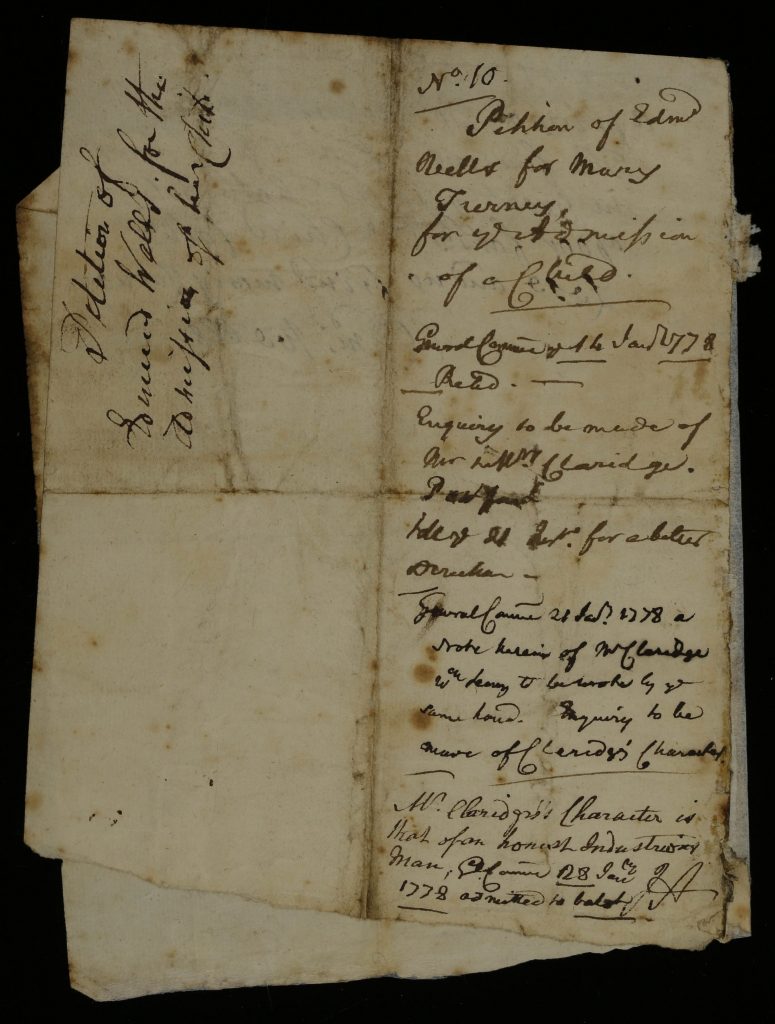 Petition of
Edmund Wells for the
Admission of her Child.
No. 10.
Petition of Edmd
Wells for Mary
Tierney,
for ye Admission
of a Child.
General Comme ye 14 Jany 1778
Reted.
Enquiry to be made of
Mr Claridge.
ye 21 for a better
Direction
General Comme 21 Jany 1778 a
Note herein of Mr Claridge
wch seems to be wrote by ye
same hand. Enquiry to be
made of Claridge's Character
Mr. Claridge's Character is
that of an honest Industrious
Man, G. Comme 28 Jany
1778 admitted to balot